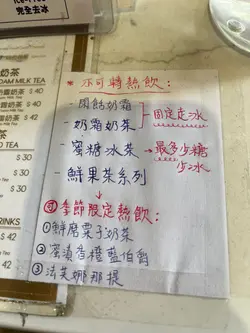 完全去冰
奶茶
AM MILK TEA
奶茶 $ 40
奶茶 $ 42
茶
TEA
$ 30
$ 30
$ 30
RINKS
$ 42
※不可轉熱飲：
-閨蜜奶霜
-奶霜奶茶
固定走冰
-蜜糖冰茶→最多少糖
少冰
-鮮果茶系列
季節限定熱飲：
①鮮磨栗子奶茶
②蜜漬香橙藍伯爵
③法芙娜那提